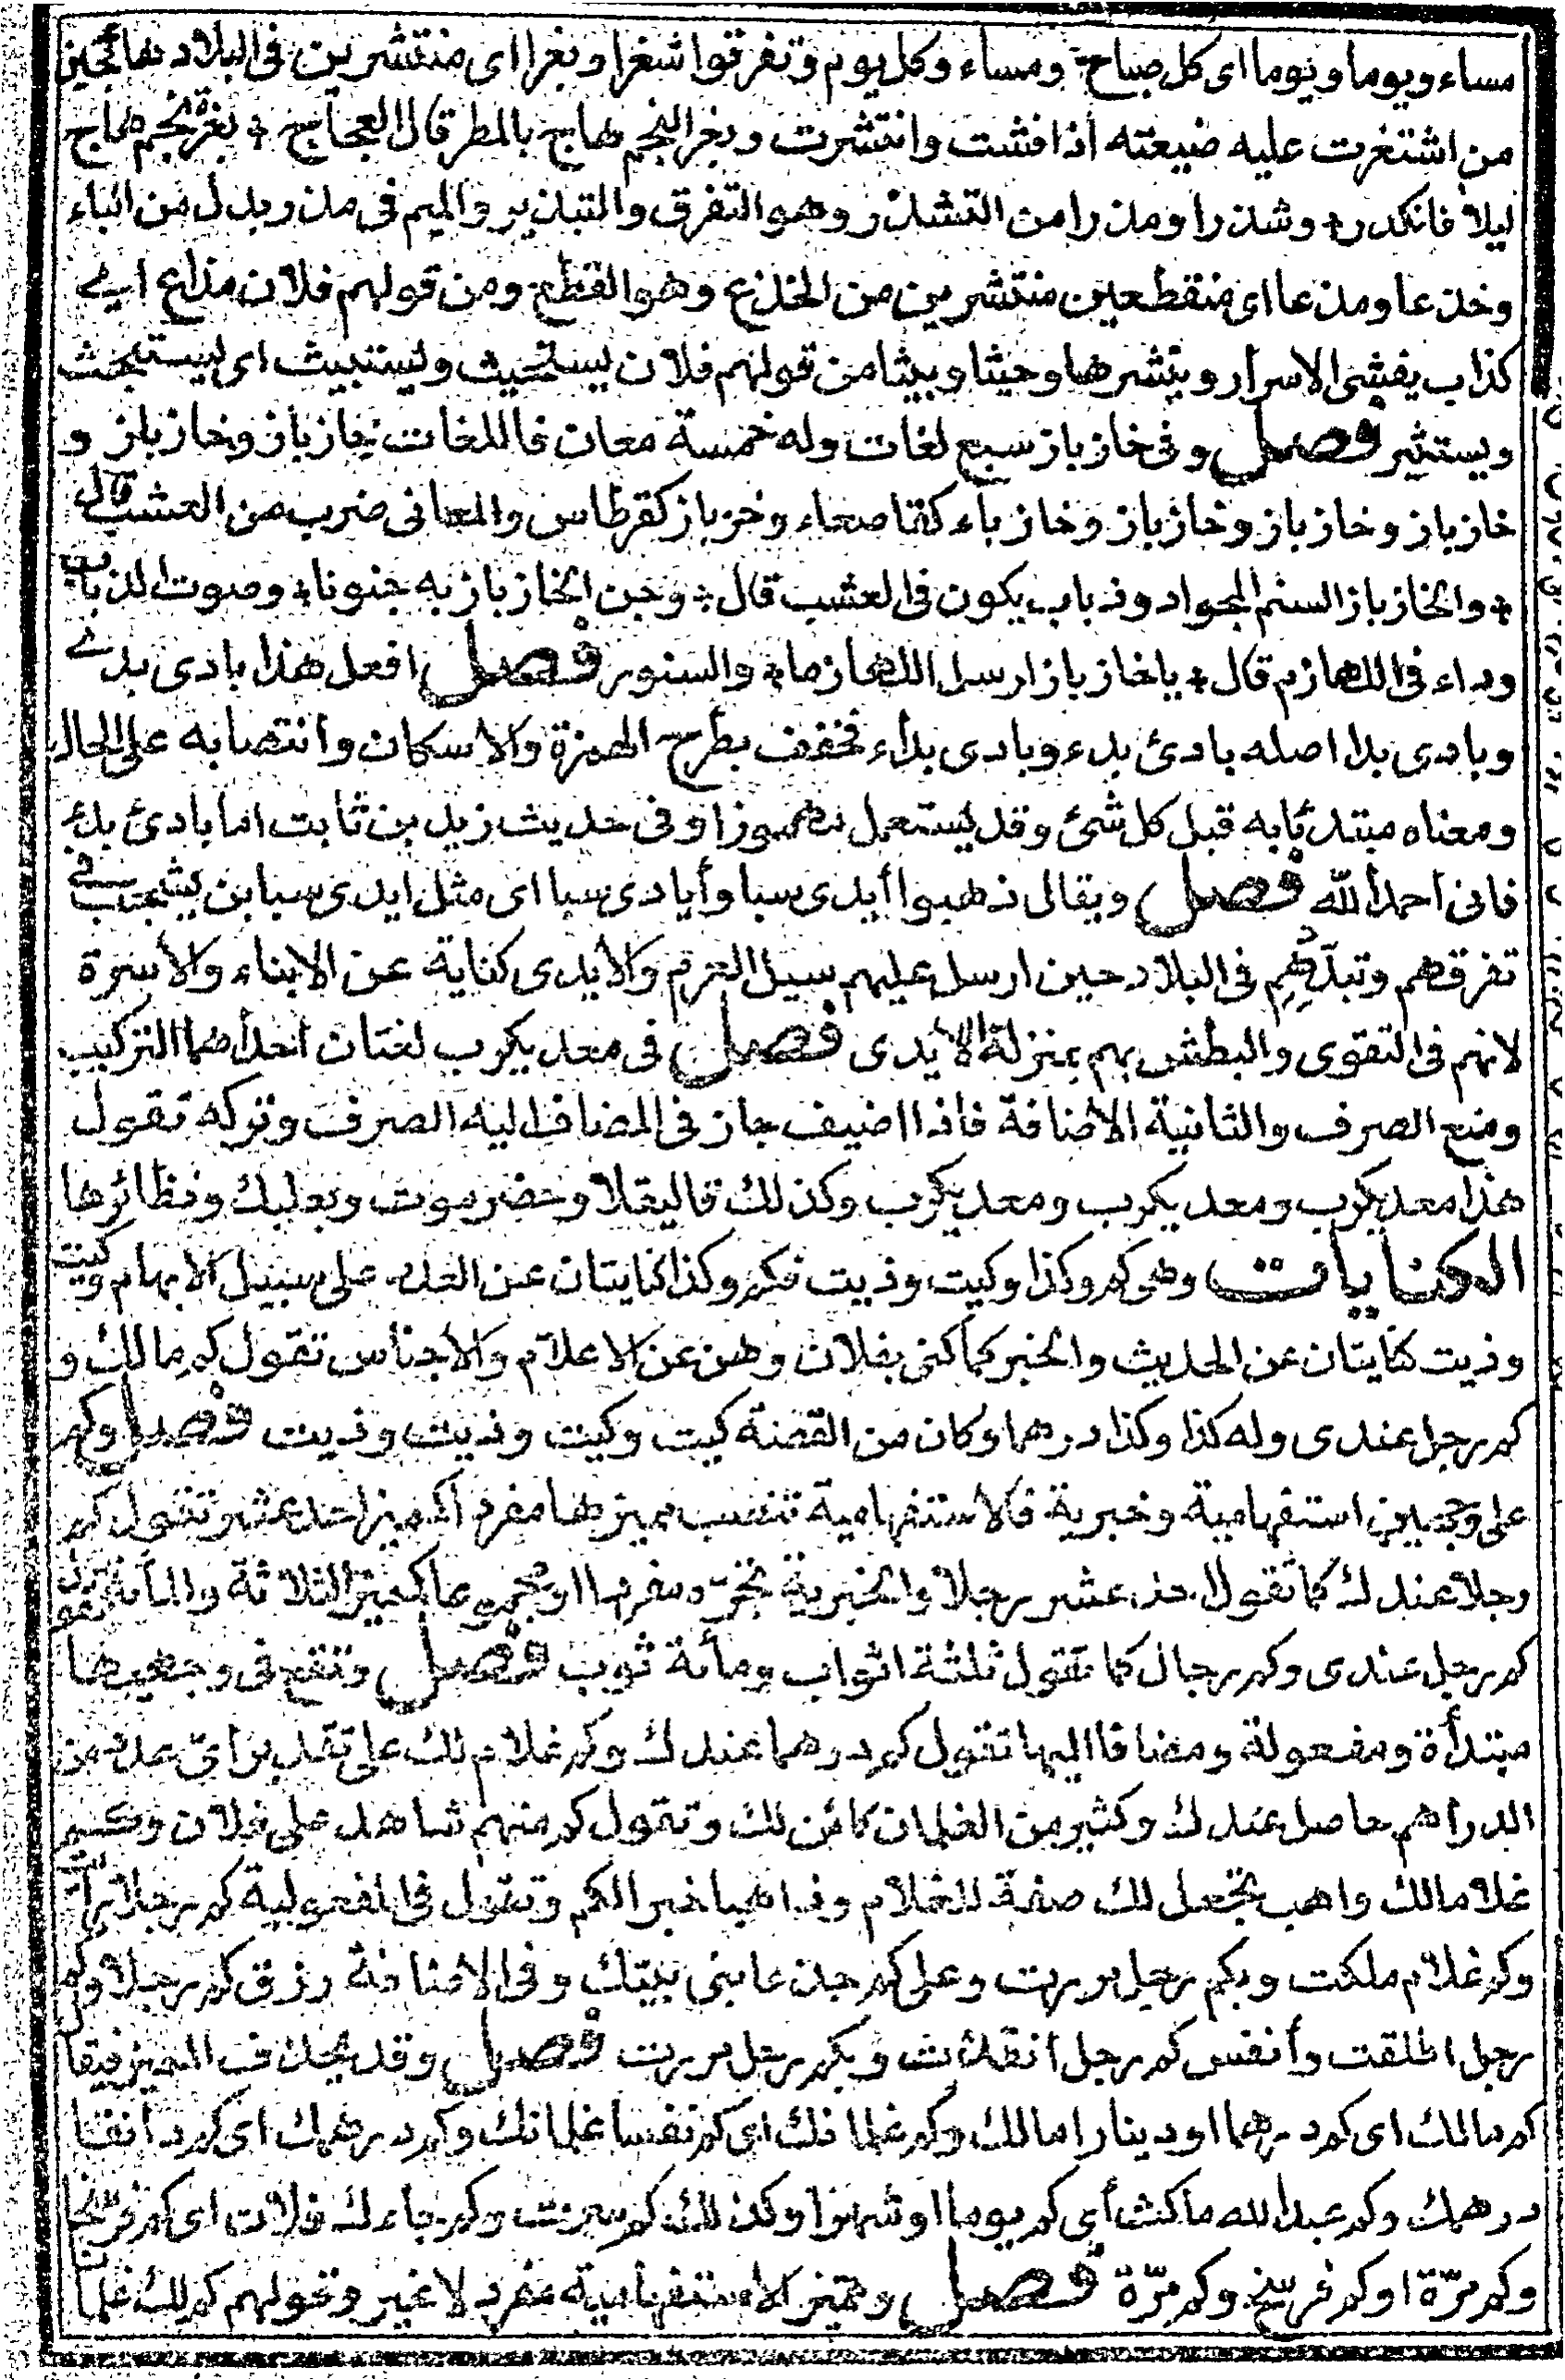 مساء ويوما ويوما اى كل صباح ومساء وكل يوم وتفرقوا شغرا وبغرا اى منتشرين فى البلاد هائجين
من اشتغرت عليه ضيعته اذا فشت وانتشرت وبغر النجم هاج بالمطر قال العجاج ؞ بغرة نجم هاج
ليلا فانكدر ؞ وشذرا ومذرا من التشذر وهو التفرق والتبذير والميم فى مذر بدل من الباء
وخذعا ومذعا اى منقطعين منتشرين من الخذع وهو القطع ومن قولهم فلان مذاع اى
كذاب يفشى الاسرار وينشرها وحيثا وبيثا من قولهم فلان يستحيث ويستبيث اى يستبحث
ويستثير فصل وفى خازباز سبع لغات وله خمسة معان فاللغات خازباز وخازباز و
خازباز وخازباز وخازباز وخازباء كقاصعاء وخزباز كقرطاس والمعانى ضرب من العشب قال
؞ والخازباز السنم المجواد وذباب يكون فى العشب قال ؞ وجن الخازباز به جنونا ؞ وصوت الذباب
وداء فى اللهازم قال ؞ يا خازباز ارسل اللهازما ؞ والسنور فصل افعل هذا بادى بدى
وبادى بدا اصله بادئ بدء وبادى بداء فخفف بطرح الهمزة والاسكان وانتصابه على الحال
ومعناه مبتدئا به قبل كل شئ وقد يستعمل مهموزا وفى حديث زيد بن ثابت اما بادئ بدء
فانى احمد الله فصل ويقال ذهبوا أيدى سبا وأيادى سبا اى مثل ايدى سبا بن يشجب فى
تفرقهم وتبددهم فى البلاد حين ارسل عليهم سيل العرم والأيدى كناية عن الابناء والأسرة
لانهم فى التقوى والبطش بهم بمنزلة الأيدى فصل فى معديكرب لغتان احداهما التركيب
ومنع الصرف والثانية الاضافة فاذا اضيف جاز فى المضاف اليه الصرف وتركه تقول
هذا معديكرب ومعديكرب ومعديكرب وكذلك قاليقلا وحضرموت وبعلبك ونظائرها
الكنايات وهى كم وكذا وكيت وذيت فكم وكذا كنايتان عن العدد على سبيل الابهام وكيت
وذيت كنايتان عن الحديث والخبر كما كنى بفلان وهن عن الاعلام والاجناس تقول كم مالك و
كم رجل عندى وله كذا وكذا درهما وكان من القصة كيت وكيت وذيت وذيت فصل وكم
على وجهين استفهامية وخبرية فالاستفهامية تنصب مميزها مفردا كمميز احد عشر تقول كم
رجلا عندك كما تقول احد عشر رجلا والخبرية تجره مفردا او مجموعا كمميز الثلاثة والمائة تقول
كم رجل عندى وكم رجال كما تقول ثلثة اثواب ومأئة ثوب فصل وتقع فى وجهيها
مبتدأة ومفعولة ومضافا اليها تقول كم درهما عندك وكم غلام لك على تقدير اى عدد من
الدراهم حاصل عندك وكثير من الغلمان كائن لك وتقول كم منهم شاهد على فلان وكم
غلاما لك واهب تجعل لك صفة للغلام وذاهبا خبرا لكم وتقول فى المفعولية كم رجلا رأيت
وكم غلام ملكت وبكم رجل مررت وعلى كم جذعا بنى بيتك وفى الاضافة رزق كم رجلا وكم
رجل اطلقت وأنفس كم رجل انقذت وبكم رجل مررت فصل وقد يحذف المميز فيقال
كم مالك اى كم درهما او دينارا مالك وكم غلمانك اى كم نفسا غلمانك وكم درهمك اى كم دانقا
درهمك وكم عبد الله ماكث أى كم يوما او شهرا وكذلك كم سرت وكم جاءك فلان اى كم فرسخا
وكم مرّة او كم فرسخ وكم مرّة فصل ومميز الاستفهامية مفرد لا غير وقولهم كم لك غلمانا